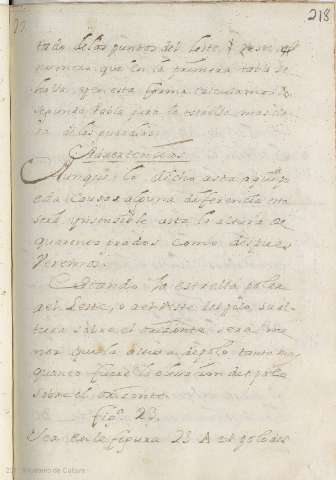 218
tado de los puntos del leste, y oeste, el
numero que en la primera tabla se
halla, y en esta forma calculamos la
segunda tabla para la estrella mas clara
de las guardias.
Advertencias.
Aunque lo dicho asta aqui pu
eda causar alguna diferencia no
sera ynsensible asta la altura de
quarenta grados como despues
veremos.
Estando la estrella polar
del Leste, o del oeste del polo, su al
tura sobre el orisonte sera me
nor que la altura del polo tanto mas
quanto fuere la elevacion del polo
sobre el orisonte.
fig.ª 23.
Sea en la figura 23 A el polo del
Ministerio de Cultura